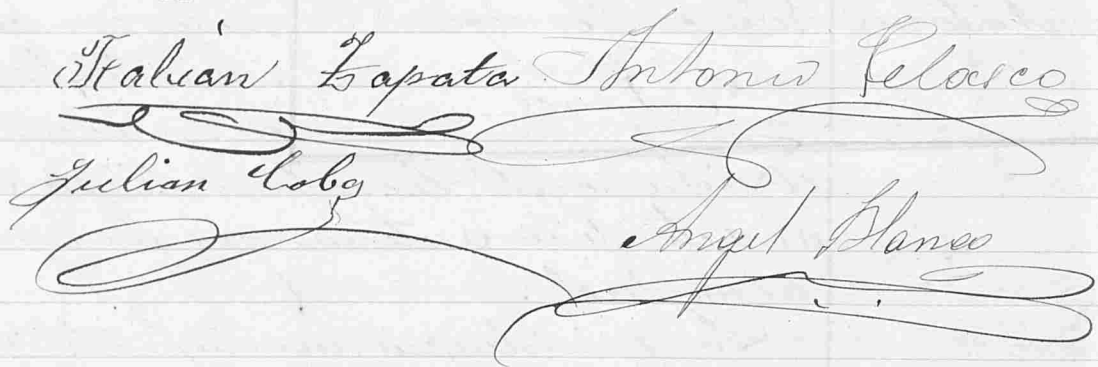 Fabián Zapata Antonio Velasco
Julian Cobo
Angel Blanco